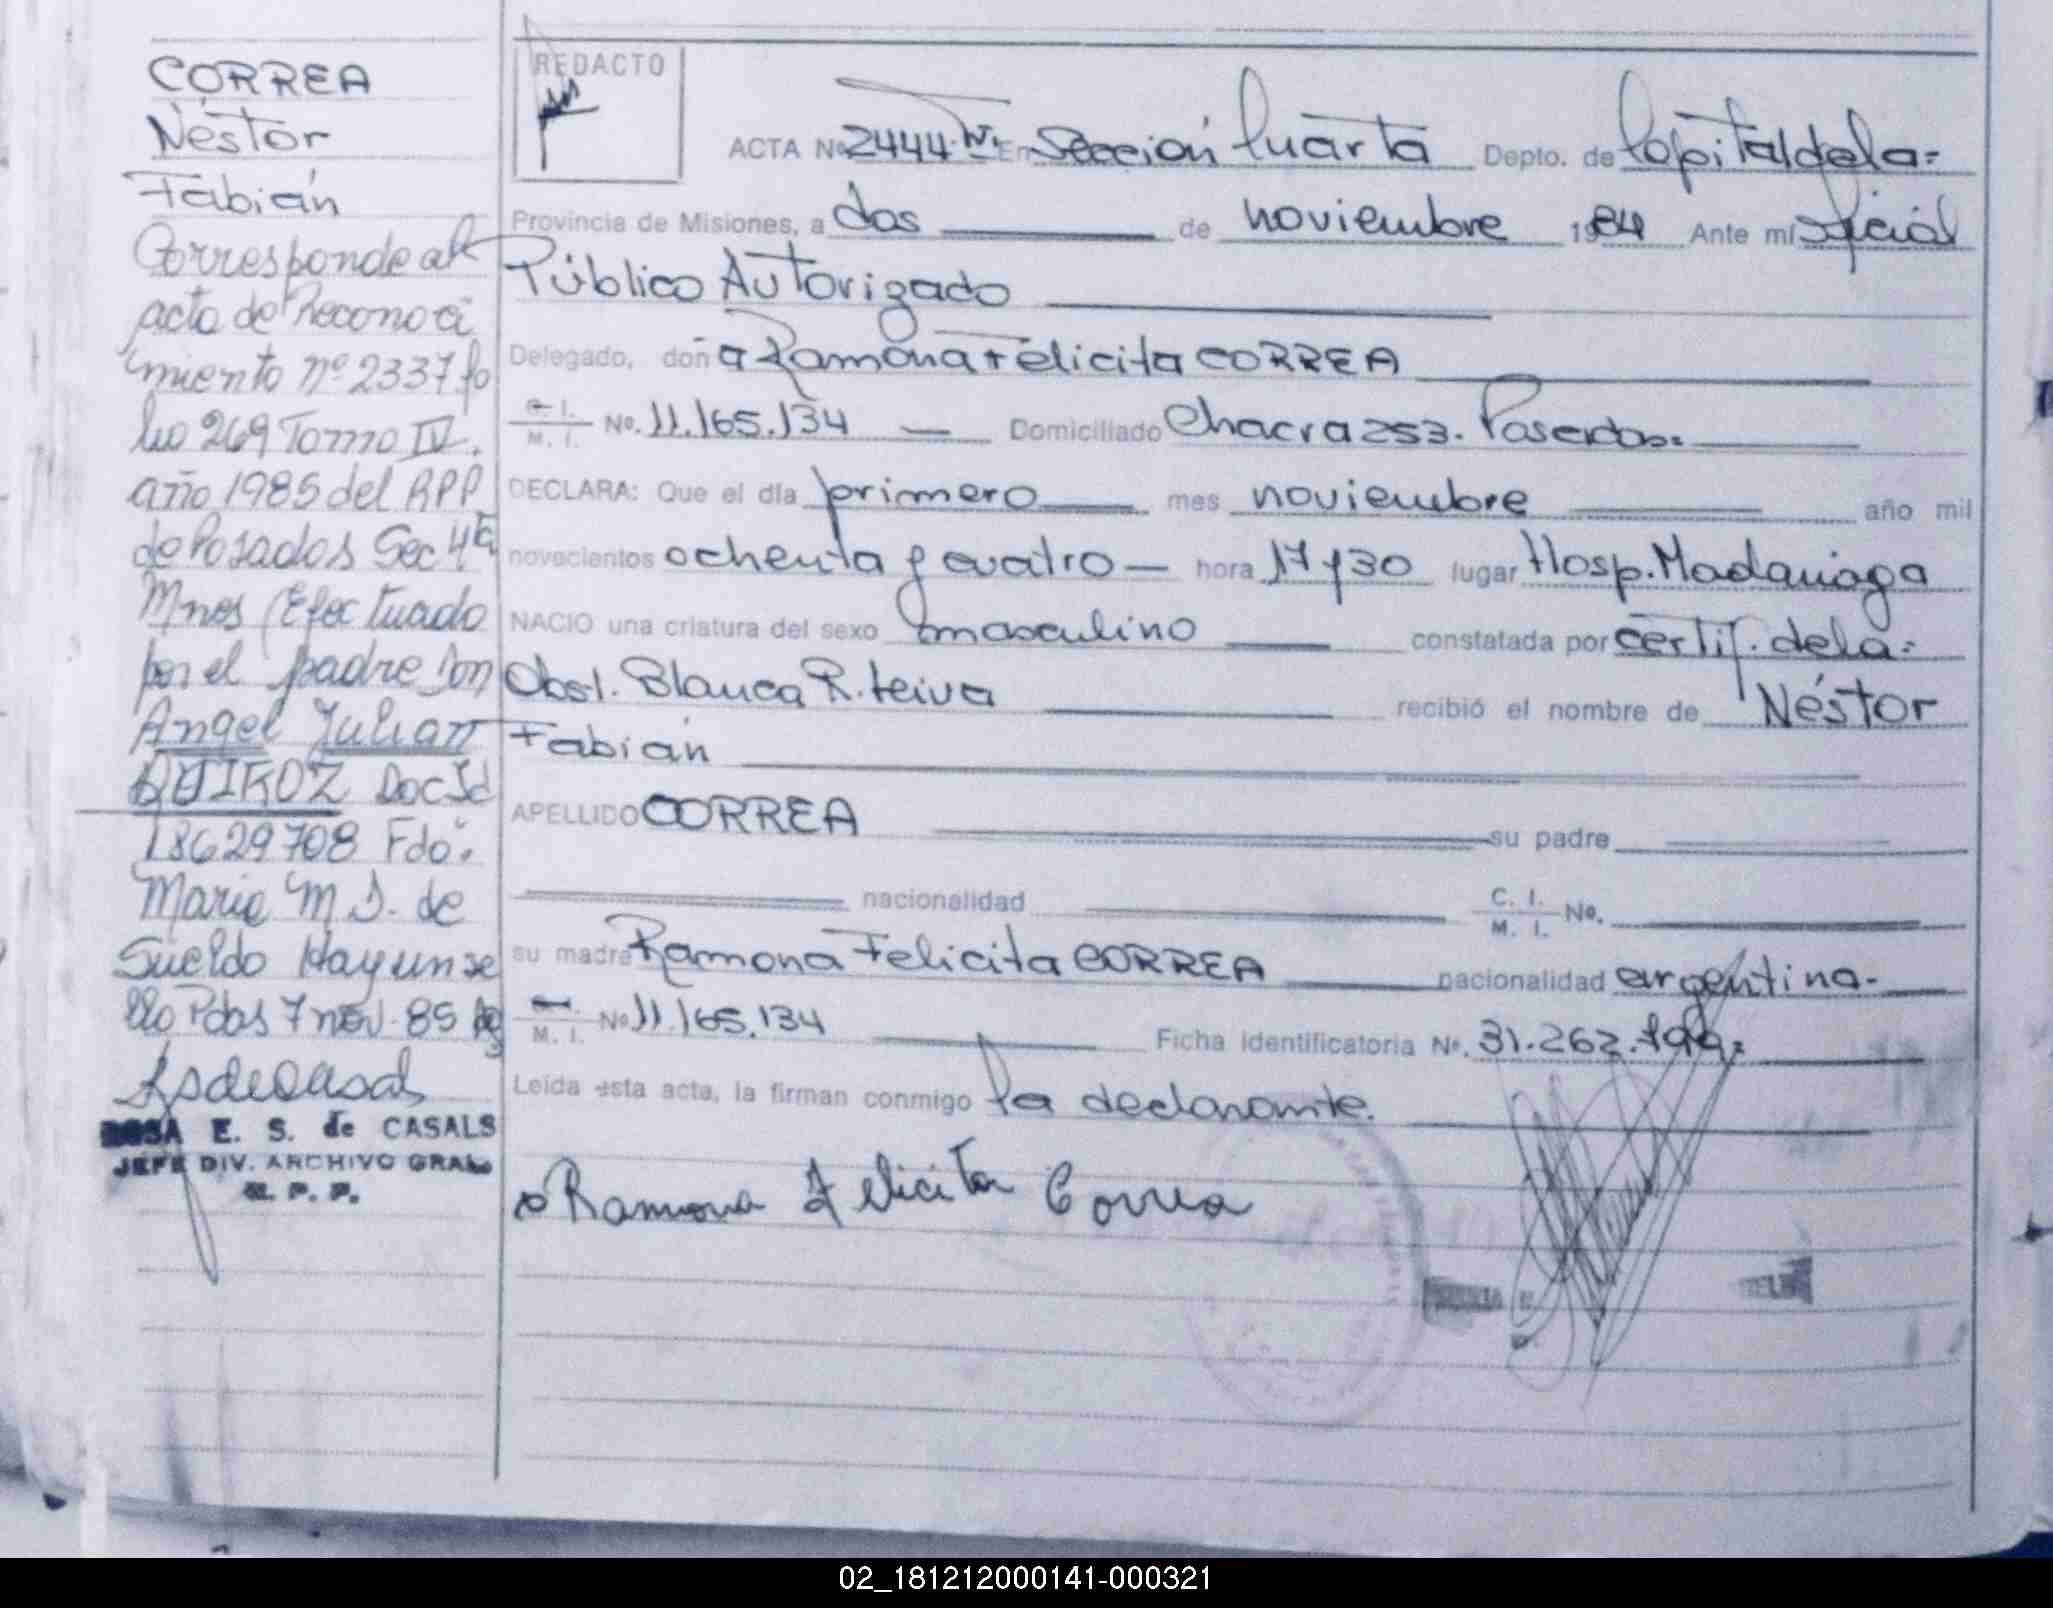 CORREA
Néstor
Fabián
Corresponde al
acta de Reconoci
miento nº 2337 fo
lio 269 Tomo IV.
año 1985 del RPP
de Posadas Sec 4ta
Mnes (Efectuado
por el padre Don
Angel Julian
QUIROZ Doc Id
18629708 Fdo:
Maria M S. de
Sueldo Hay un se
llo Pdas 7 nov. 85
ROSA E. S. de CASALS
JEFE DIV. ARCHIVO GRAL
R. P. P.
REDACTO
ACTA Nº 2444 En Sección Cuarta Depto. de Capital de la=
Provincia de Misiones, a dos de noviembre 1984 Ante mí Oficial
Público Autorizado
Delegado, doña Ramona Felicita CORREA
C. I. M. I. Nº. 11.165.134 Domiciliado Chacra 253. Posadas=
DECLARA: Que el día primero mes noviembre año mil
novecientos ochenta y cuatro hora 17 y 30 lugar Hosp. Madariaga
NACIO una criatura del sexo masculino constatada por certif. de la=
Obst. Blanca R. Leiva recibió el nombre de Néstor
Fabián
APELLIDO CORREA su padre
nacionalidad C. I. M. I. Nº.
su madre Ramona Felicita CORREA nacionalidad argentina.
M. I. Nº 11.165.134 Ficha identificatoria Nº. 31.262.
Leída esta acta, la firman conmigo la declarante.
Ramona Felicita Correa
02_181212000141-000321